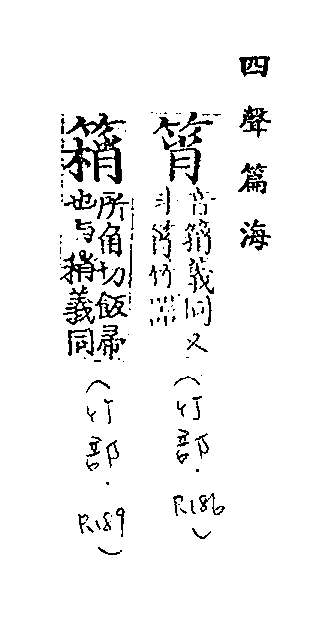 四聲篇海
筲
音䈰義同又
斗筲竹器
(竹部.P.186)
䈰
所角切飯帚
也与義同
(竹部.P.189)